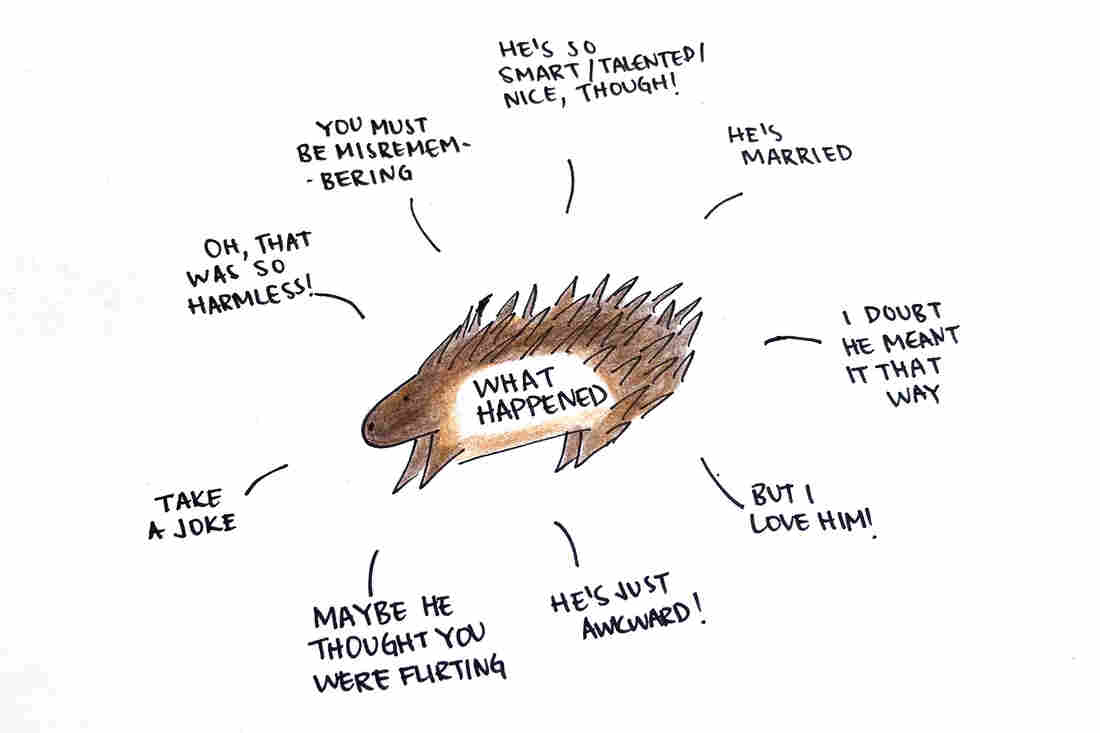 HE'S SO
SMART/TALENTED/
NICE, THOUGH!
YOU MUST
BE MISREMEM-
- BERING
HE'S
MARRIED
OH, THAT
WAS SO
HARMLESS!
I DOUBT
HE MEANT
IT THAT
WAY
WHAT
HAPPENED
TAKE
A JOKE
BUT I
LOVE HIM!
MAYBE HE
THOUGHT YOU
WERE FLIRTING
HE'S JUST
AWKWARD!